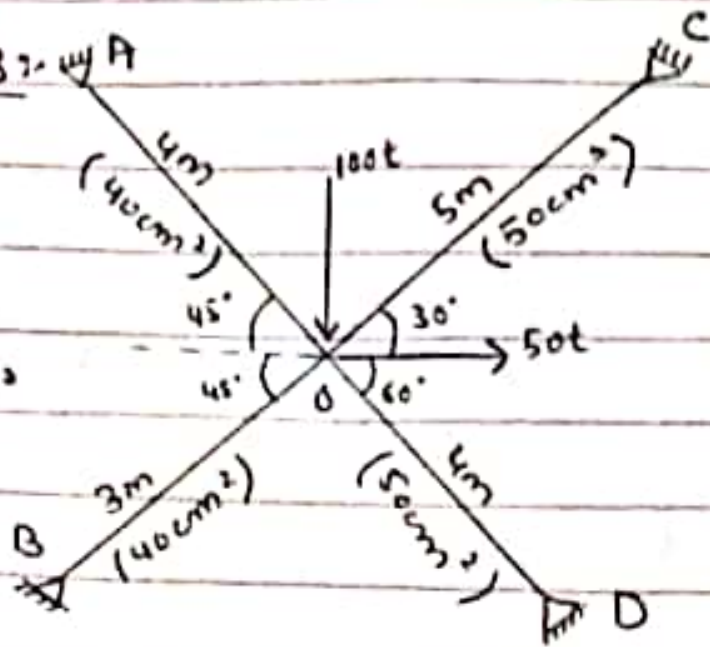 A
C
4m
(40cm²)
100t
5m
(50cm²)
45°
30°
50t
45°
60°
O
3m
(40cm²)
4m
(50cm²)
B
D